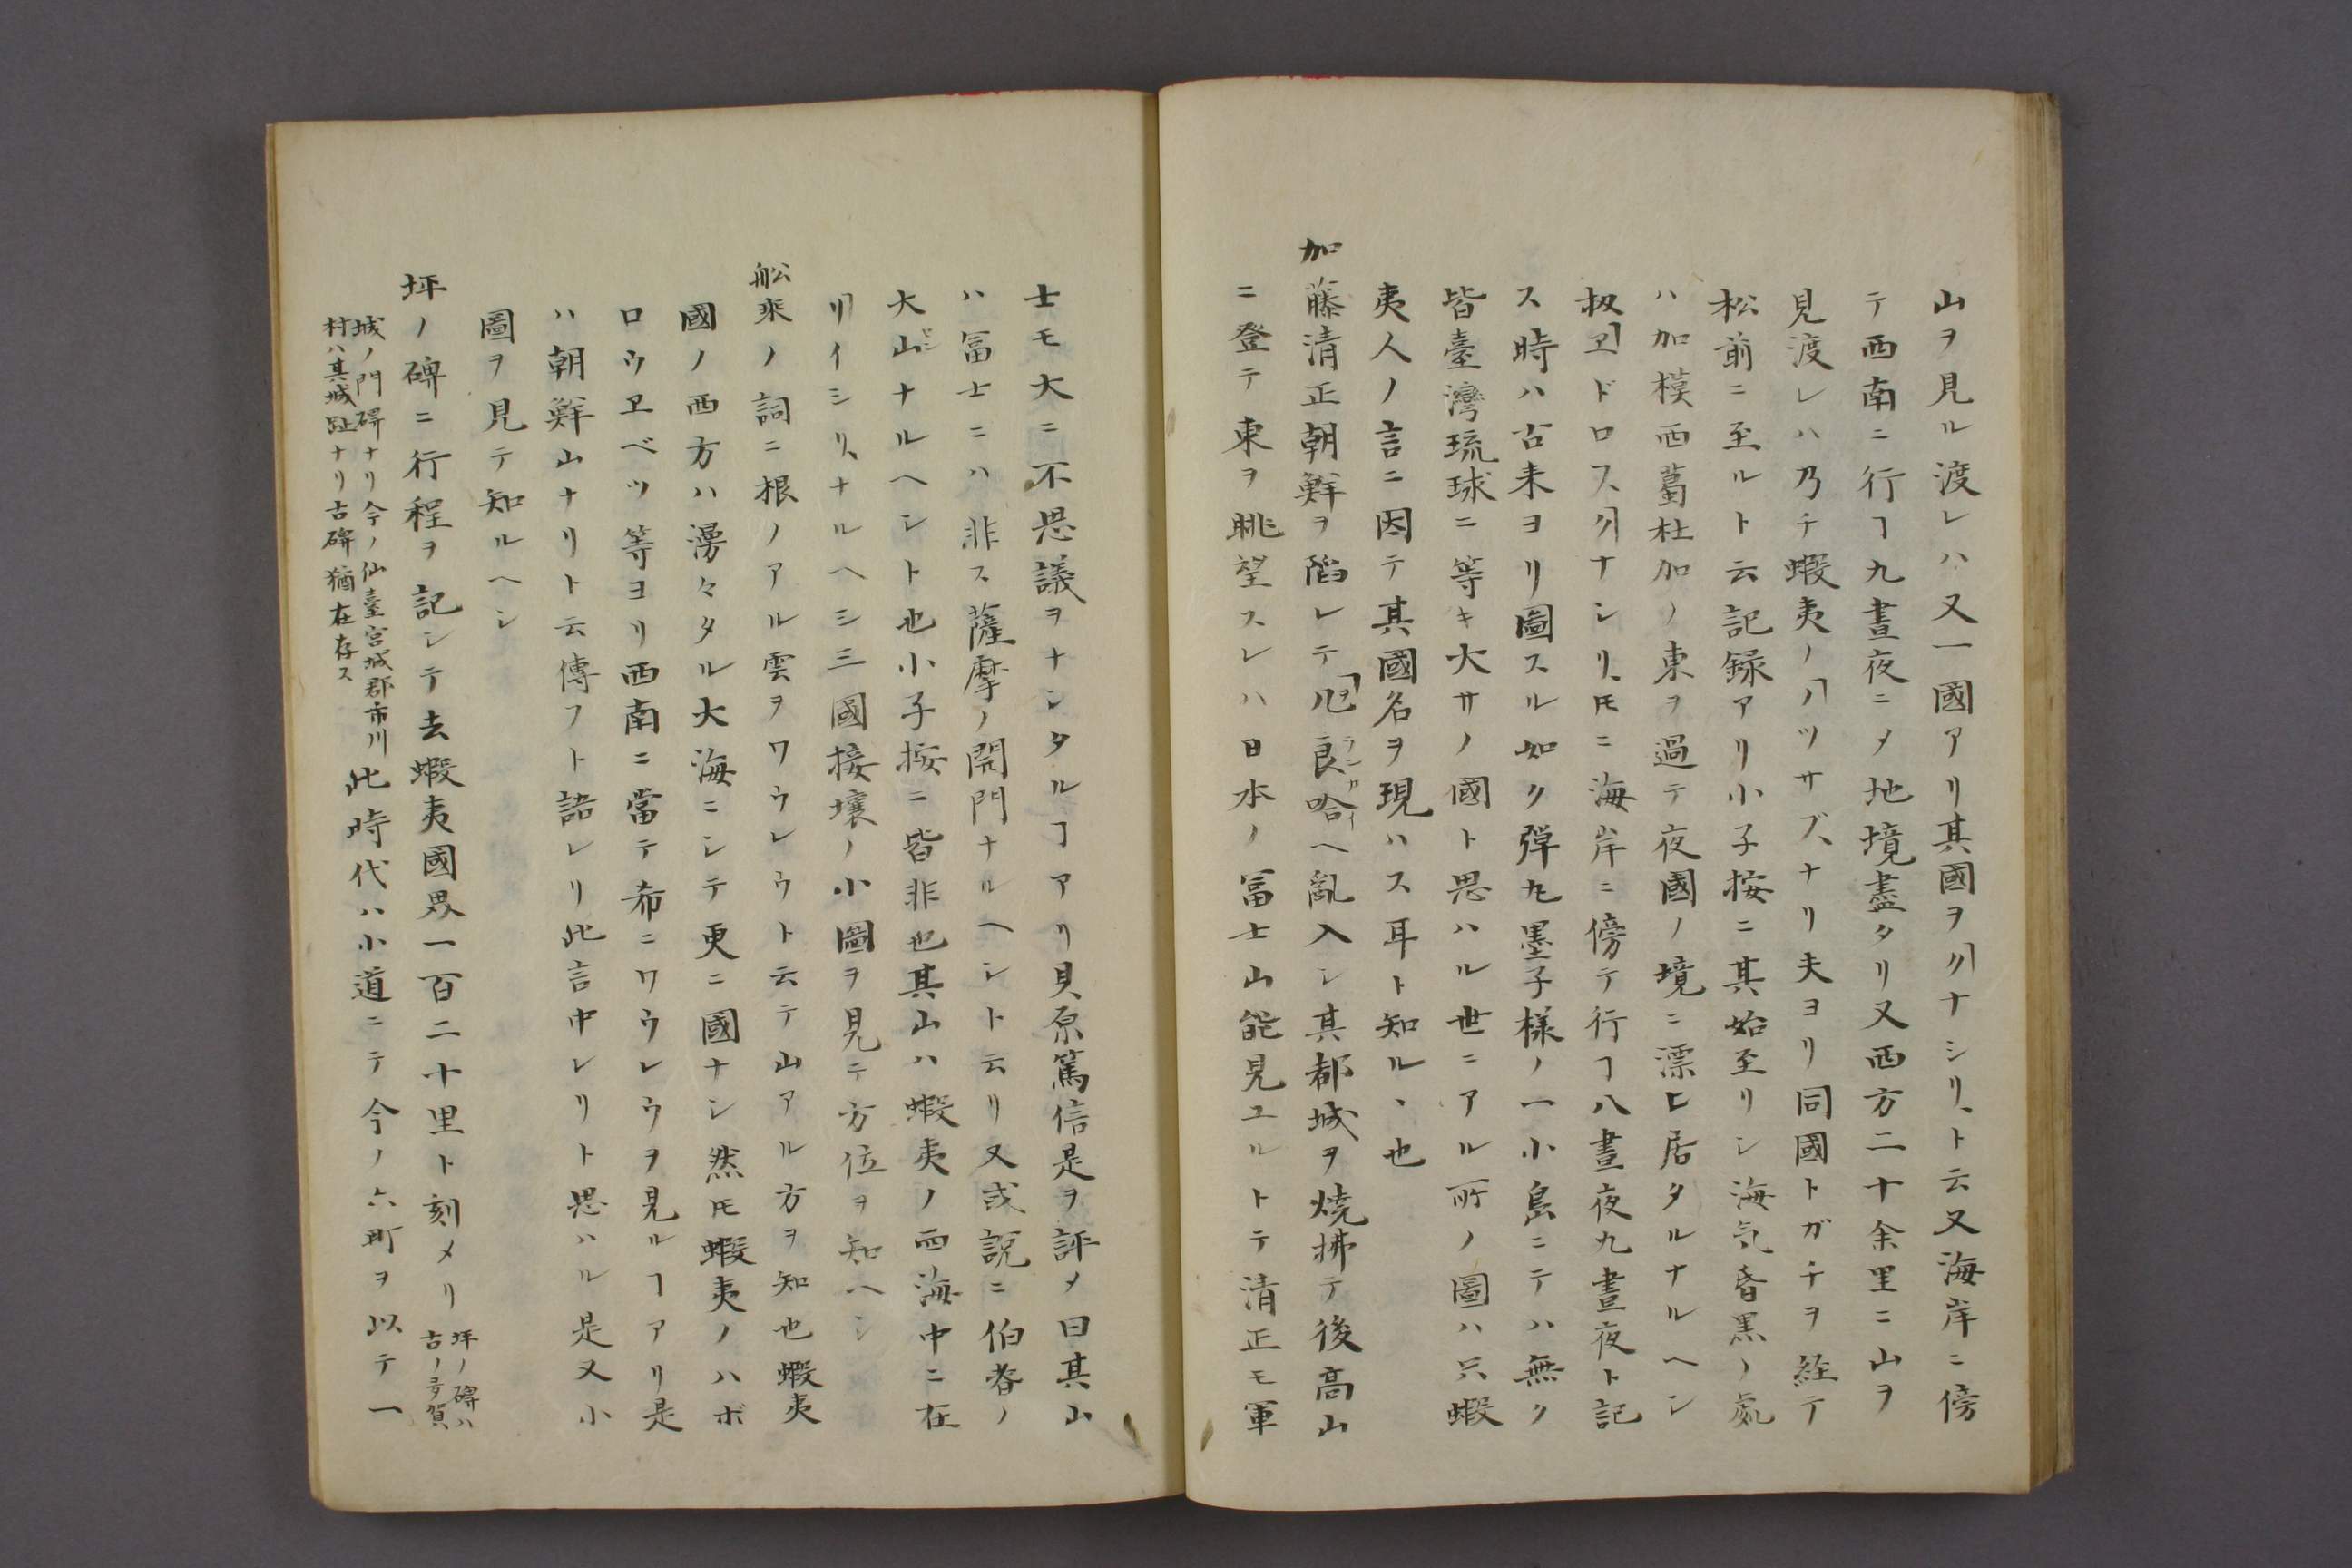 山ヲ見ル渡レハ又一國アリ其國ヲクナシリ、ト云又海岸ニ傍
テ西南ニ行ヿ九晝夜ニメ地境盡タリ又西方二十余里ニ山ヲ
見渡レハ乃チ蝦夷ノハツサブ、ナリ夫ヨリ同國トガチヲ経テ
松前ニ至ルト云記録アリ小子按ニ其始至リシ海気昏黒ノ處
ハ加模西葛杜加ノ東ヲ過テ夜國ノ境ニ漂ヒ居タルナルヘシ
扨ヱドロスクナシリ、𪜈ニ海岸ニ傍テ行ヿ八晝夜九晝夜ト記
ス時ハ古来ヨリ圖スル如ク彈丸墨子様ノ一小島ニテハ無ク
皆臺灣琉球ニ等キ大サノ國ト思ハル世ニアル所ノ圖ハ只蝦
夷人ノ言ニ因テ其國名ヲ現ハス耳ト知ル、也
加藤清正朝鮮ヲ陷レテ兀良哈ヘ亂入シ其都城ヲ燒拂テ後高山
ニ登テ東ヲ眺望スレハ日本ノ冨士山能見ユルトテ清正モ軍
士モ大ニ不思議ヲナシタルヿアリ貝原篤信是ヲ評メ曰其山
ハ冨士ニハ非ス薩摩ノ開門ナルヘシト云リ又或説ニ伯耆ノ
大山ナルヘシト也小子按ニ皆非也其山ハ蝦夷ノ西海中ニ在
リイシリ、ナルヘシ三國接壤ノ小圖ヲ見テ方位ヲ知ヘシ
舩乗ノ詞ニ根ノアル雲ヲワウレウト云テ山アル方ヲ知也蝦夷
國ノ西方ハ漫々タル大海ニシテ更ニ國ナシ然𪜈蝦夷ノハボ
ロウヱベツ等ヨリ西南ニ當テ希ニワウレウヲ見ルヿアリ是
ハ朝鮮山ナリト云傳フト語レリ此言中レリト思ハル是又小
圖ヲ見テ知ルヘシ
坪ノ碑ニ行程ヲ記シテ去蝦夷國界一百二十里ト刻メリ 坪ノ碑ハ
古ノ多賀
城ノ門碑ナリ今ノ仙臺宮城郡市川
村ハ其城趾ナリ古碑猶在存ス
此時代ハ小道ニテ今ノ六町ヲ以テ一